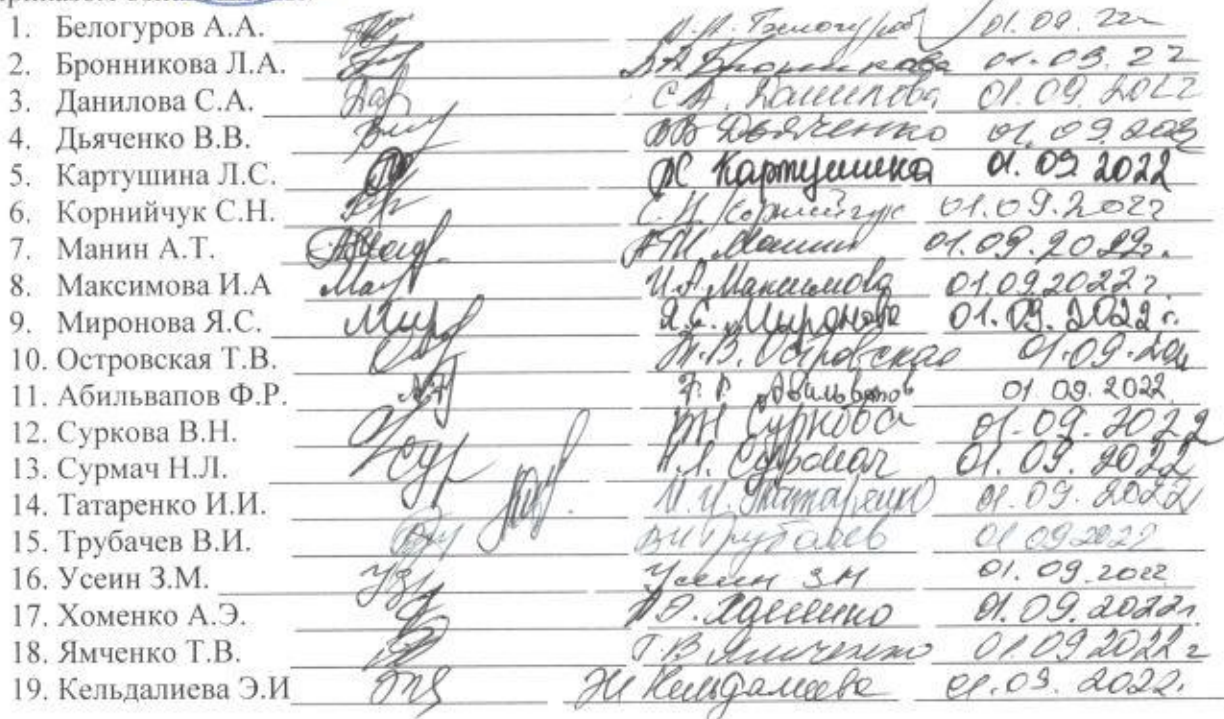 1. Белогуров А.А. А.А. Белогуров 01.09.22г
2. Бронникова Л.А. ЛА Бронникова 01.09.22
3. Данилова С.А. С.А. Данилова 01.09.2022
4. Дьяченко В.В. ВВ Дьяченко 01.09.2022
5. Картушина Л.С. ЛС Картушина 01.09.2022
6. Корнийчук С.Н. С.Н. Корнийчук 01.09.2022
7. Манин А.Т. А.Т. Манин 01.09.2022г.
8. Максимова И.А И.А. Максимова 01.09.2022г
9. Миронова Я.С. Я.С. Миронова 01.09.2022г.
10. Островская Т.В. Т.В. Островская 01.09.202
11. Абильвапов Ф.Р. Ф.Р. Абильвапов 01.09.2022
12. Суркова В.Н. ВН Суркова 01.09.2022
13. Сурмач Н.Л. Н.Л. Сурмач 01.09.2022
14. Татаренко И.И. И.И. Татаренко 01.09.2022
15. Трубачев В.И. ВИ Трубачев 01.09.2022
16. Усеин З.М. Усеин З.М 01.09.2022
17. Хоменко А.Э. А.Э. Хоменко 01.09.2022г
18. Ямченко Т.В. Т.В Ямченко 01.09.2022г
19. Кельдалиева Э.И ЭИ Кельдалиева 01.09.2022.